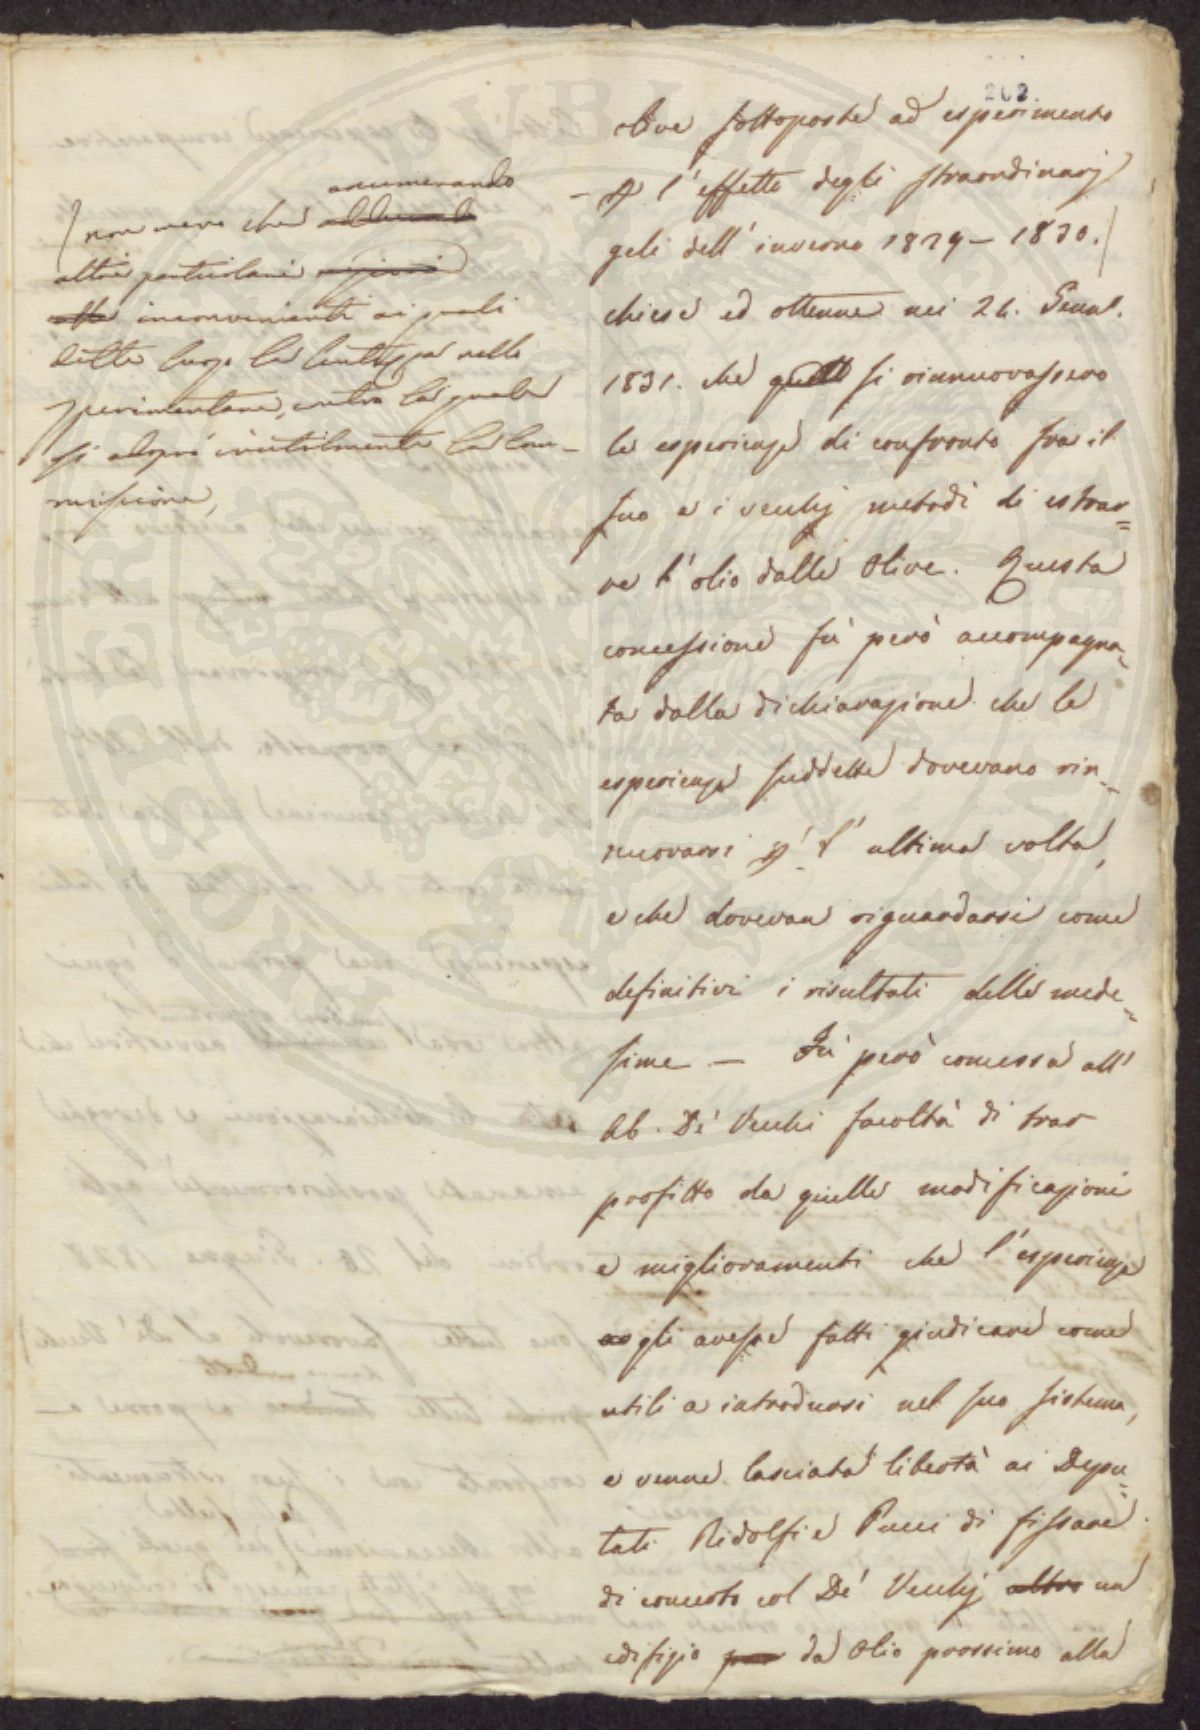 202.
live sottoposte ad esperimento
- p l'effetto degli straordinarj
geli dell'inverno 1829 - 1830.
chiese ed ottenne nei 26. Genn.
1831. che si rinnuovassero
le esperienze di confronto fra il
suo e i vecchj metodi di estrar=
re l'olio dalle Olive. Questa
concessione fù però accompagna=
ta dalla dichiarazione che le
esperienze suddette dovevano rin=
nuovarsi p l'ultima volta,
e che dovevan riguardarsi come
definitivi i risultati delle mede=
sime - Fù però concessa all'
Ab. De' Vecchi facoltà di trar
profitto da quelle modificazioni
e miglioramenti che l'esperienza
gli avesse fatti giudicare come
utili a introdursi nel suo sistema,
e venne lasciata libertà ai Depu=
tati Ridolfi e Pucci di fissare
di concerto col De' Vecchj altro un
edifizio da Olio prossimo alla
anumerando
non meno che
altri particolari
inconvenienti ai quali
dette luogo la lentezza nello
sperimentare, contro la quale
si adoprò inutilmente la Com-
missione,